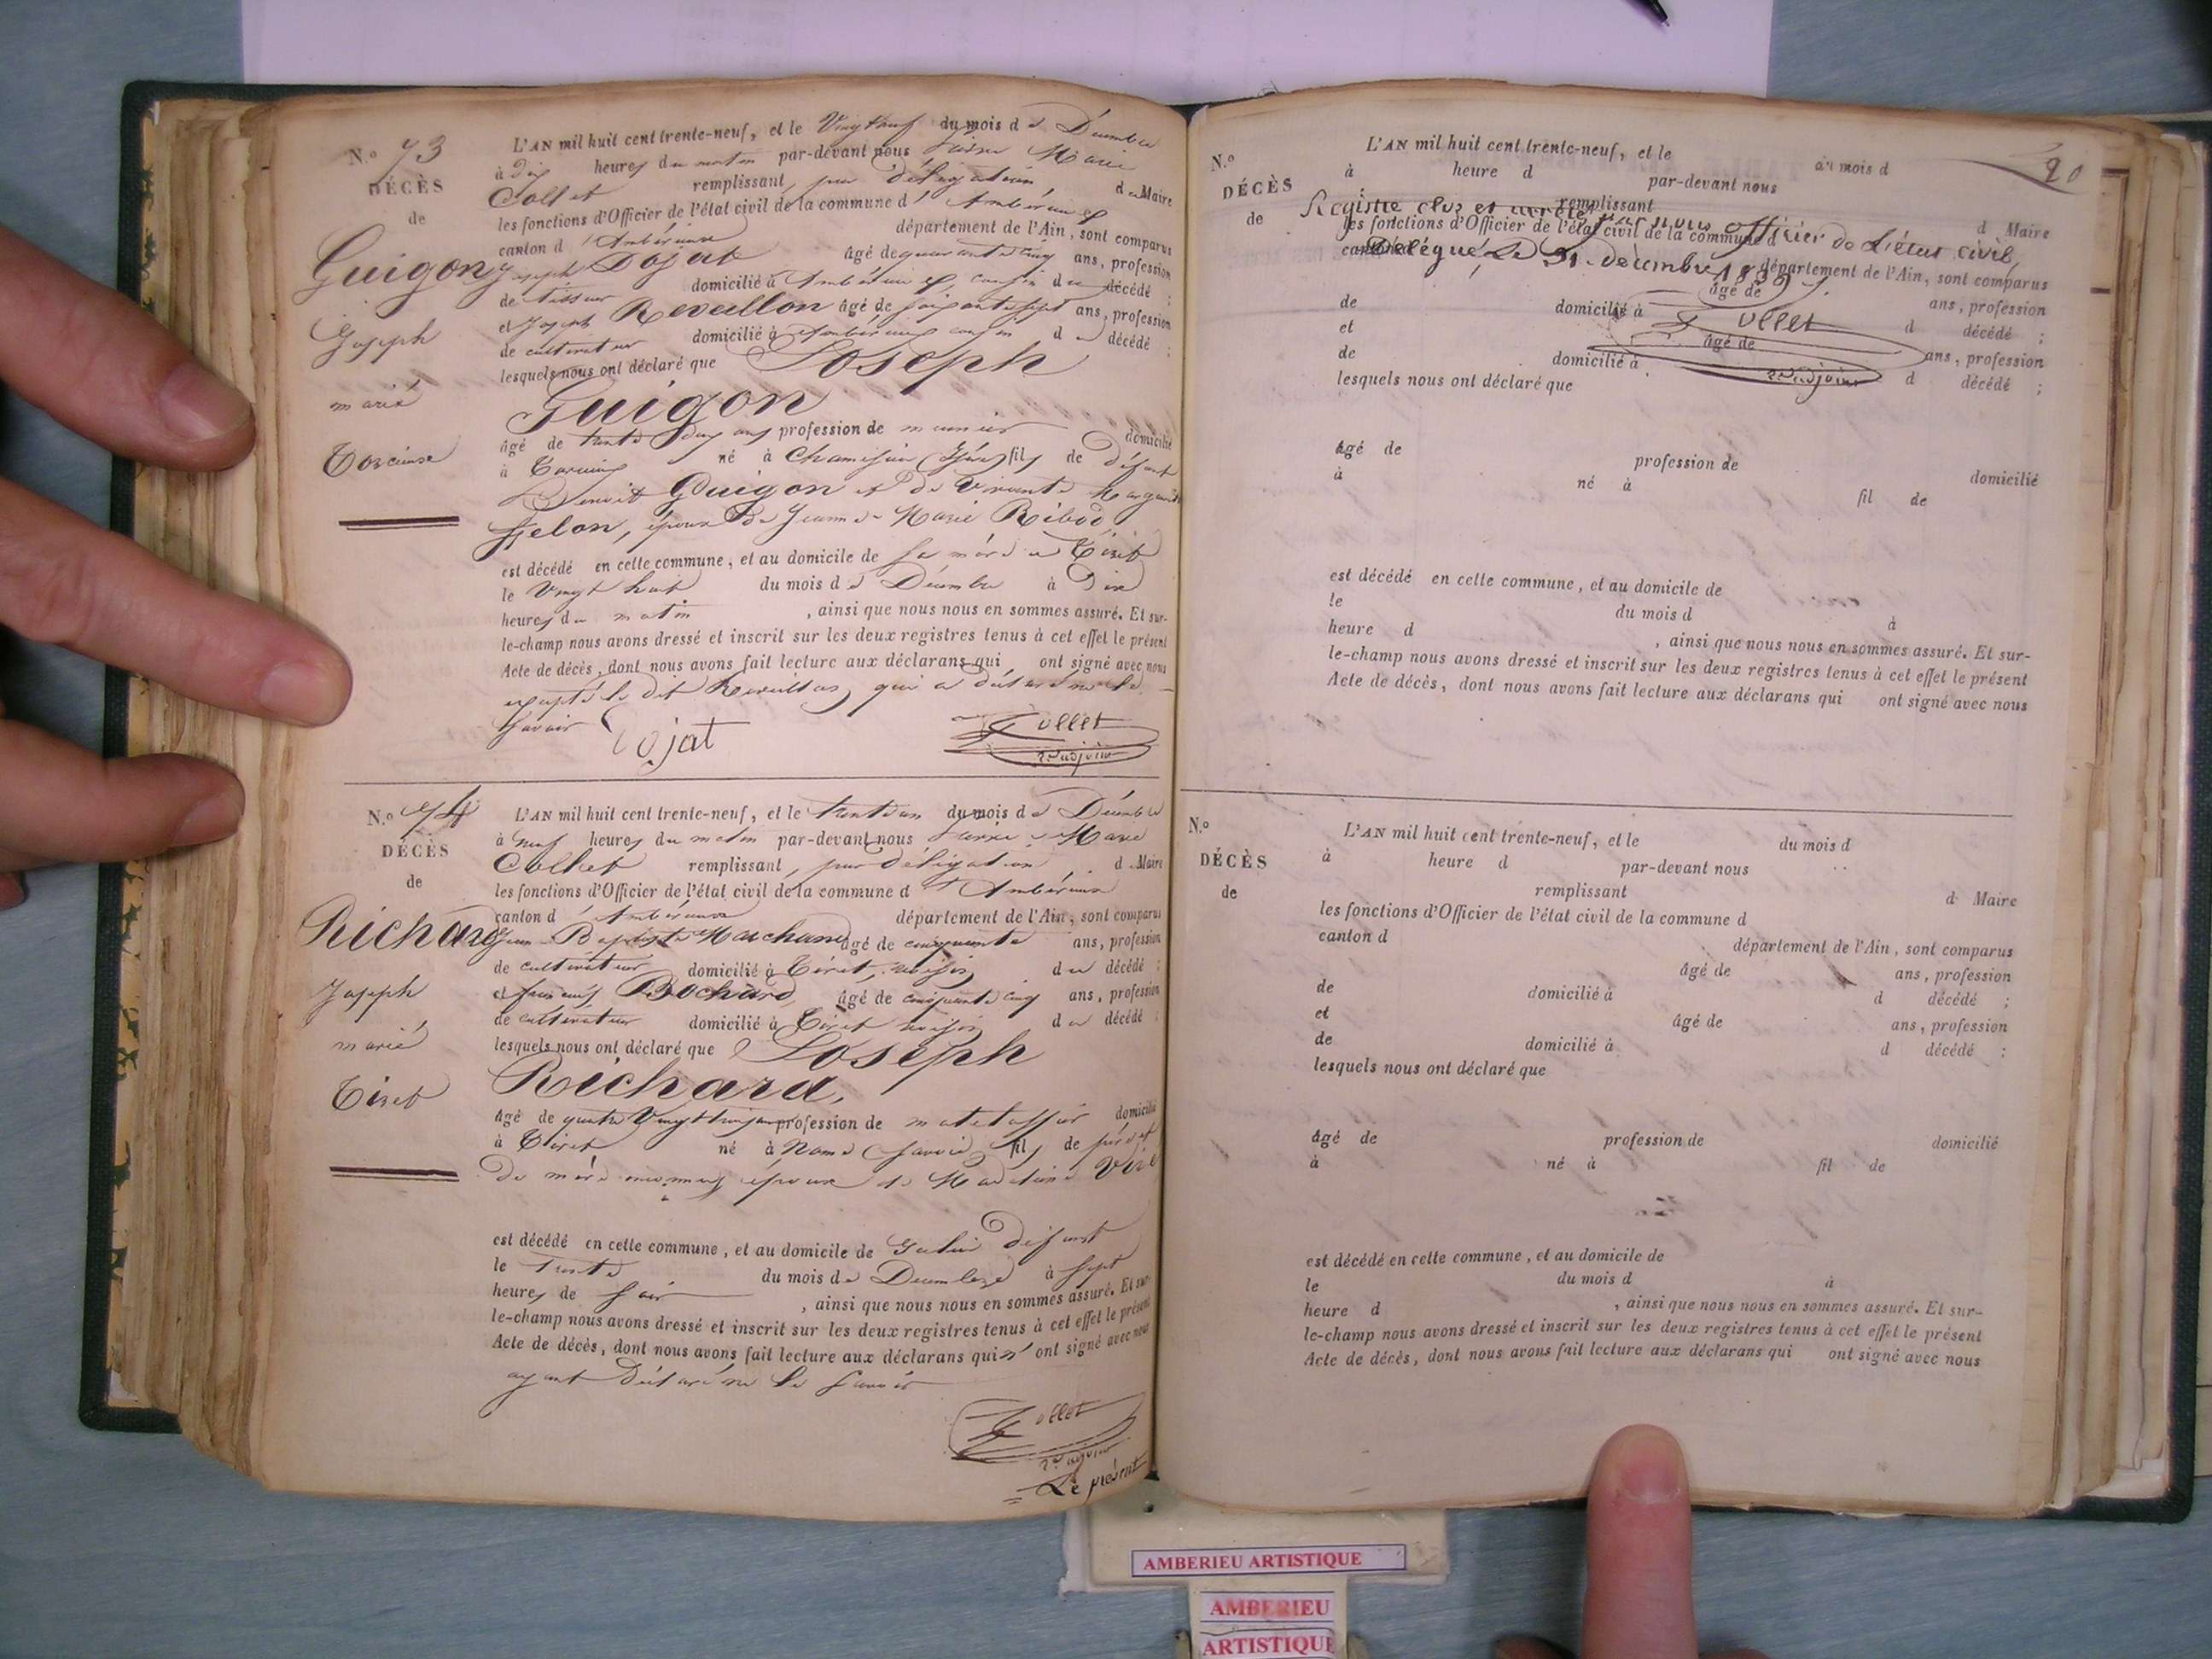 N.o 73
DÉCÈS
de
Guigon
Joseph
marié
Torcieux
L'AN mil huit cent trente-neuf, et le Vingt neuf du mois de Décembre
à dix heures du matin par-devant nous Pierre Marie
Collet remplissant, par délégation du Maire
les fonctions d'Officier de l'état civil de la commune d'Ambérieux
canton d'Ambérieux département de l'Ain, sont comparus
Joseph Dojat âgé de quarante cinq ans, profession
de tisseur domicilié à Ambérieux, cousin du décédé ;
et Joseph Revellon âgé de soixante sept ans, profession
de cultivateur domicilié à Ambérieux cousin d décédé ;
lesquels nous ont déclaré que Joseph
Guigon
âgé de trente ans profession de meunier domicilié
à né à (Isère) fils de défunt
Benoit Guigon et de Vivante Marguerite
époux de Jeanne-Marie Ribod
est décédé en cette commune, et au domicile de sa mère à Tiret
le Vingt huit du mois de Décembre à Dix
heures du matin , ainsi que nous nous en sommes assuré. Et sur-
le-champ nous avons dressé et inscrit sur les deux registres tenus à cet effet le présent
Acte de décès, dont nous avons fait lecture aux déclarans qui ont signé avec nous
excepté le dit Revellon qui a déclaré ne le
savoir Dojat Collet
2e adjoint
N.o 74
DÉCÈS
de
Richard
Joseph
marié
Tiret
L'AN mil huit cent trente-neuf, et le trente un du mois de Décembre
à neuf heures du matin par-devant nous Pierre-Marie
Collet remplissant, par délégation d Maire
les fonctions d'Officier de l'état civil de la commune d'Ambérieux
canton d'Ambérieux département de l'Ain, sont comparus
Jean-Baptiste Marchand âgé de cinquante ans, profession
de cultivateur domicilié à Tiret, voisin du décédé ;
et françois Bochard âgé de cinquante cinq ans, profession
de cultivateur domicilié à Tiret voisin du décédé ;
lesquels nous ont déclaré que Joseph
Richard,
âgé de quatre Vingt ans profession de matelassier domicilié
à Tiret né à (Savoie) fils de père et
de mère inconnus époux de
est décédé en cette commune, et au domicile de Défunt
le Trente du mois de Décembre à Sept
heures de soir , ainsi que nous nous en sommes assuré. Et sur-
le-champ nous avons dressé et inscrit sur les deux registres tenus à cet effet le présent
Acte de décès, dont nous avons fait lecture aux déclarans qui n' ont signé avec nous
ayant déclaré ne le savoir
Collet
2e adjoint
Le présent
20
N.o
DÉCÈS
de
L'AN mil huit cent trente-neuf, et le du mois d
à heure d par-devant nous
remplissant d Maire
Registre clos et arrêté par nous officier de L'état civil,
les fonctions d'Officier de l'état civil de la commune d
Délégué, Le 31 décembre 1839.
canton d département de l'Ain, sont comparus
âgé de ans, profession
de domicilié à d décédé ;
Collet
et âgé de ans, profession
de domicilié à d décédé ;
2e adjoint
lesquels nous ont déclaré que
âgé de profession de domicilié
à né à fil de
est décédé en cette commune, et au domicile de
le du mois d à
heure d , ainsi que nous nous en sommes assuré. Et sur-
le-champ nous avons dressé et inscrit sur les deux registres tenus à cet effet le présent
Acte de décès, dont nous avons fait lecture aux déclarans qui ont signé avec nous
N.o
DÉCÈS
de
L'AN mil huit cent trente-neuf, et le du mois d
à heure d par-devant nous
remplissant d Maire
les fonctions d'Officier de l'état civil de la commune d
canton d département de l'Ain, sont comparus
âgé de ans, profession
de domicilié à d décédé ;
et âgé de ans, profession
de domicilié à d décédé :
lesquels nous ont déclaré que
âgé de profession de domicilié
à né à fil de
est décédé en cette commune, et au domicile de
le du mois d à
heure d , ainsi que nous nous en sommes assuré. Et sur-
le-champ nous avons dressé et inscrit sur les deux registres tenus à cet effet le présent
Acte de décès, dont nous avons fait lecture aux déclarans qui ont signé avec nous
AMBERIEU ARTISTIQUE
AMBERIEU
ARTISTIQUE